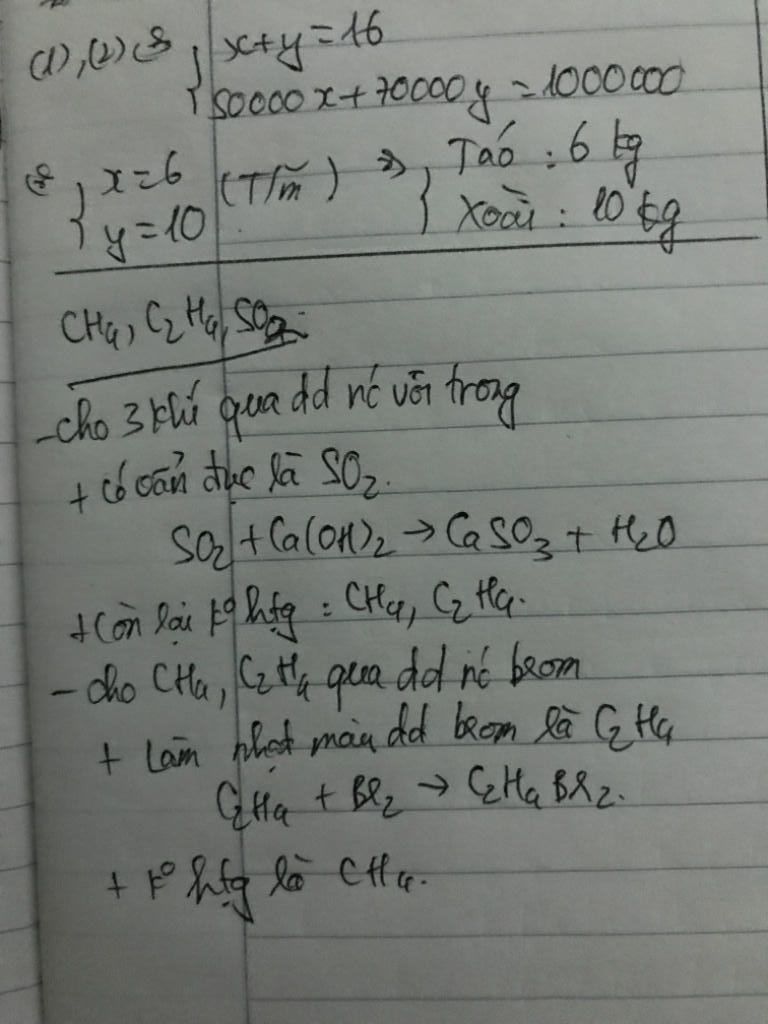 (1), (2) ⇔ { x+y=16
50000x+70000y=1000000
⇔ { x=6 (T/m) ⇒ { Táo : 6 kg
y=10 Xoài : 10 kg
CH4, C2H4, SO2.
- cho 3 khí qua dd nc vôi trong
+ có vẩn đục là SO2.
SO2 + Ca(OH)2 → CaSO3 + H2O
+ Còn lại ko htg : CH4, C2H4.
- cho CH4, C2H4 qua dd nc brom
+ Làm nhạt màu dd brom là C2H4
C2H4 + Br2 → C2H4Br2.
+ ko htg là CH4.